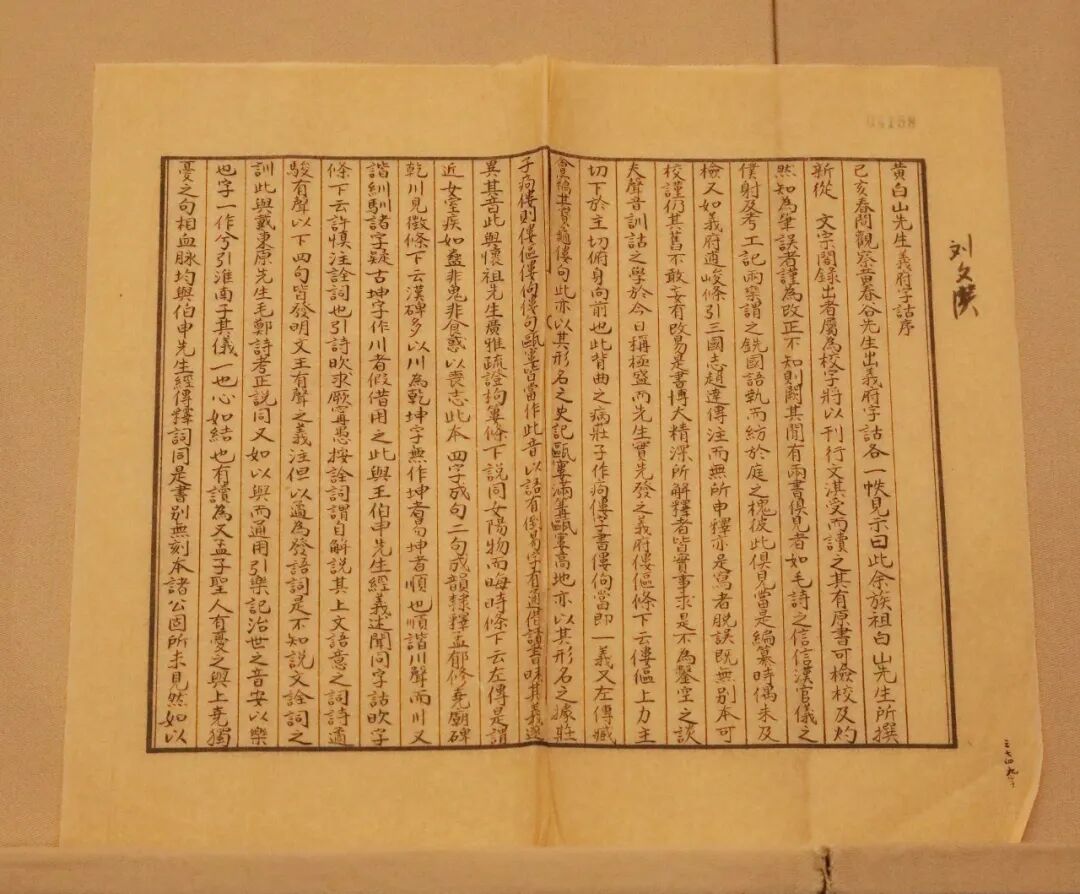 04158
刘文淇
黄白山先生義府字詁序
己亥春間觀察黄春谷先生出義府字詁各一帙見示曰此余族祖白山先生所撰
新從 文宗閣錄出者屬為校字將以刊行文淇受而讀之其有原書可檢校及灼
然知為筆誤者謹為改正不知則闕其閒有兩書俱見者如毛詩之信信漢官儀之
僕射及考工記兩欒謂之銑國語執而紡於庭之槐彼此俱見當是編纂時偶未及
檢又如義府遒峻條引三國志趙達傳注而無所申釋亦是寫者脱誤既無别本可
校謹仍其舊不敢妄有改易是書博大精深所解釋者皆實事求是不為鑿空之談
夫聲音訓詁之學於今日稱極盛而先生實先發之義府僂傴條下云僂傴上力主
切下於主切俯身向前也此背曲之病莊子作痀僂字書僂佝當即一義又左傳臧
會竊其寶龜僂句此亦以其形名之史記甌窶滿篝甌窶高地亦以其形名之據莊
子痀僂則僂傴僂佝僂句甌窶皆當作此音以語有倒易字有通借讀書昧其義遂
異其音此與懷祖先生廣雅疏證拘簍條下説同女陽物而晦時條下云左傳是謂
近女室疾如蠱非鬼非食惑以喪志此本四字成句二句成韻隸釋孟郁修堯廟碑
乾川見徵條下云漢碑多以川為乾坤字無作坤者易坤者順也順諧川聲而川又
諧紃馴諸字疑古坤字作川者假借用之此與王伯申先生經義述聞同字詁欥字
條下云許慎注詮詞也引詩欥求厥寧愚按詮詞謂自解説其上文語意之詞詩遹
駿有聲以下四句皆發明文王有聲之義注但以遹為發語詞是不知説文詮詞之
訓此與戴東原先生毛鄭詩考正説同又如以與而通用引樂記治世之音安以樂
也字一作兮引淮南子其儀一也心如結也有讀為又孟子聖人有憂之與上堯獨
憂之句相血脉均與伯申先生經傳釋詞同是書别無刻本諸公固所未見然如以